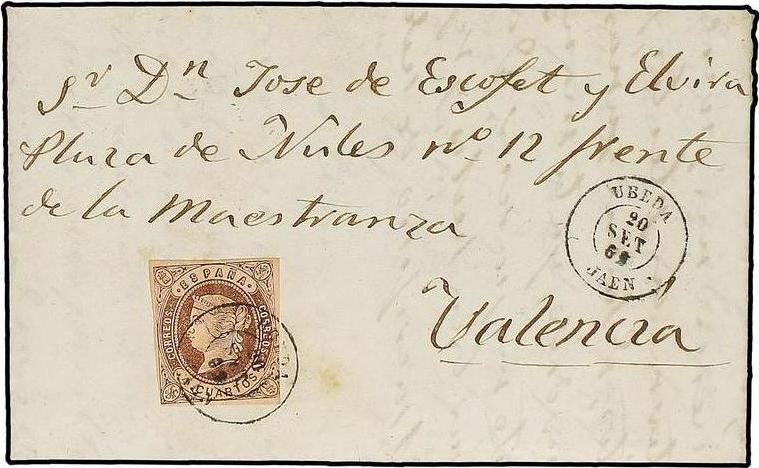 Sr Dn Jose de Escofet y Elvira
Plaza de Nules nº 12 frente
de la Maestranza
Valencia
UBEDA
20
SET
62
JAEN
ESPAÑA
CORREOS
CORREOS
4 CUARTOS